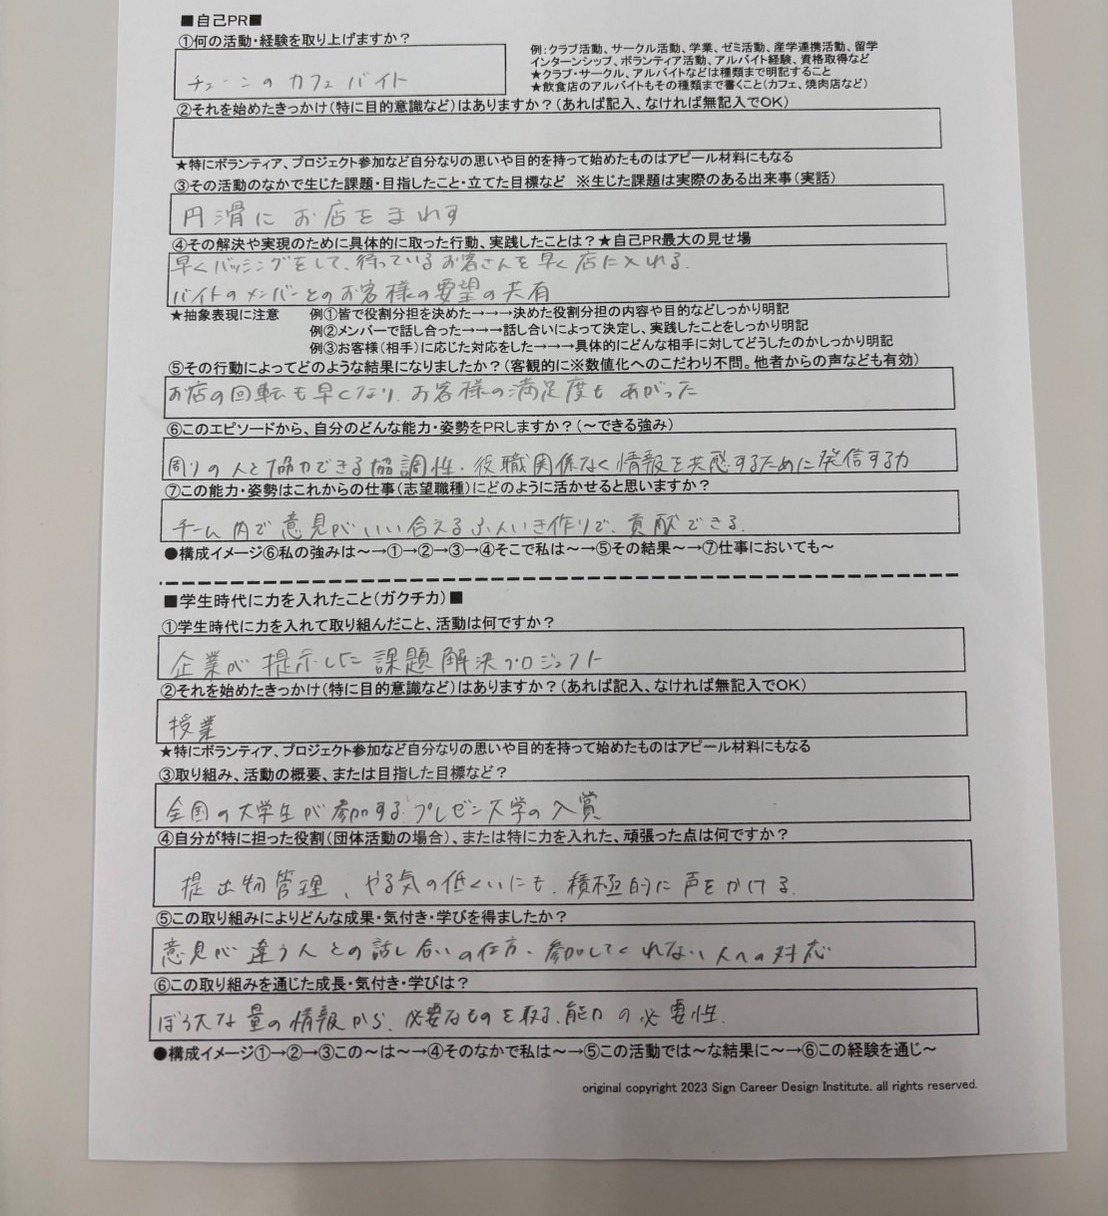 ■自己PR■
①何の活動・経験を取り上げますか？
チェーンのカフェバイト
例：クラブ活動、サークル活動、学業、ゼミ活動、産学連携活動、留学
インターンシップ、ボランティア活動、アルバイト経験、資格取得など
★クラブ・サークル、アルバイトなどは種類まで明記すること
★飲食店のアルバイトもその種類まで書くこと（カフェ、焼肉店など）
②それを始めたきっかけ（特に目的意識など）はありますか？（あれば記入、なければ無記入でOK）
★特にボランティア、プロジェクト参加など自分なりの思いや目的を持って始めたものはアピール材料にもなる
③その活動のなかで生じた課題・目指したこと・立てた目標など　※生じた課題は実際のある出来事（実話）
円滑にお店をまわす
④その解決や実現のために具体的に取った行動、実践したことは？★自己PR最大の見せ場
早くバッシングをして、待っているお客さんを早く店に入れる.
バイトのメンバーとのお客様の要望の共有
★抽象表現に注意　例①皆で役割分担を決めた→→→決めた役割分担の内容や目的などしっかり明記
例②メンバーで話し合った→→→話し合いによって決定し、実践したことをしっかり明記
例③お客様（相手）に応じた対応をした→→→具体的にどんな相手に対してどうしたのかしっかり明記
⑤その行動によってどのような結果になりましたか？（客観的に※数値化へのこだわり不問。他者からの声なども有効）
お店の回転も早くなり、お客様の満足度もあがった
⑥このエピソードから、自分のどんな能力・姿勢をPRしますか？（～できる強み）
周りの人と協力できる協調性・役職関係なく情報を共感するために発信する力
⑦この能力・姿勢はこれからの仕事（志望職種）にどのように活かせると思いますか？
チーム内で意見がいい合えるふんいき作りで、貢献できる.
●構成イメージ⑥私の強みは～→①→②→③→④そこで私は～→⑤その結果～→⑦仕事においても～
■学生時代に力を入れたこと（ガクチカ）■
①学生時代に力を入れて取り組んだこと、活動は何ですか？
企業が提示した課題解決プロジェクト
②それを始めたきっかけ（特に目的意識など）はありますか？（あれば記入、なければ無記入でOK）
授業
★特にボランティア、プロジェクト参加など自分なりの思いや目的を持って始めたものはアピール材料にもなる
③取り組み、活動の概要、または目指した目標など？
全国の大学生が参加するプレゼン大学の入賞
④自分が特に担った役割（団体活動の場合）、または特に力を入れた、頑張った点は何ですか？
提出物管理、やる気の低くいにも、積極的に声をかける.
⑤この取り組みによりどんな成果・気付き・学びを得ましたか？
意見が違う人との話し合いの仕方・参加してくれない人への対応
⑥この取り組みを通じた成長・気付き・学びは？
ぼう大な量の情報から、必要なものを取る能力の必要性.
●構成イメージ①→②→③この～は～→④そのなかで私は～→⑤この活動では～な結果に～→⑥この経験を通じ～
original copyright 2023 Sign Career Design Institute. all rights reserved.